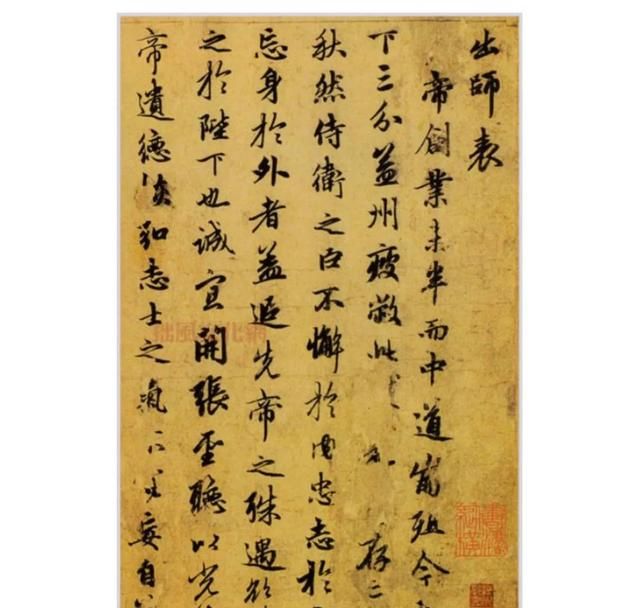 出師表
帝創業未半而中道崩殂今
下三分益州疲敝此存
秋然侍衛之臣不懈於内忠志於
忘身於外者蓋追先帝之殊遇欲
之於陛下也誠宜開張聖聽以光
帝遺德恢弘志士之氣不宜妄自
拙風文化網